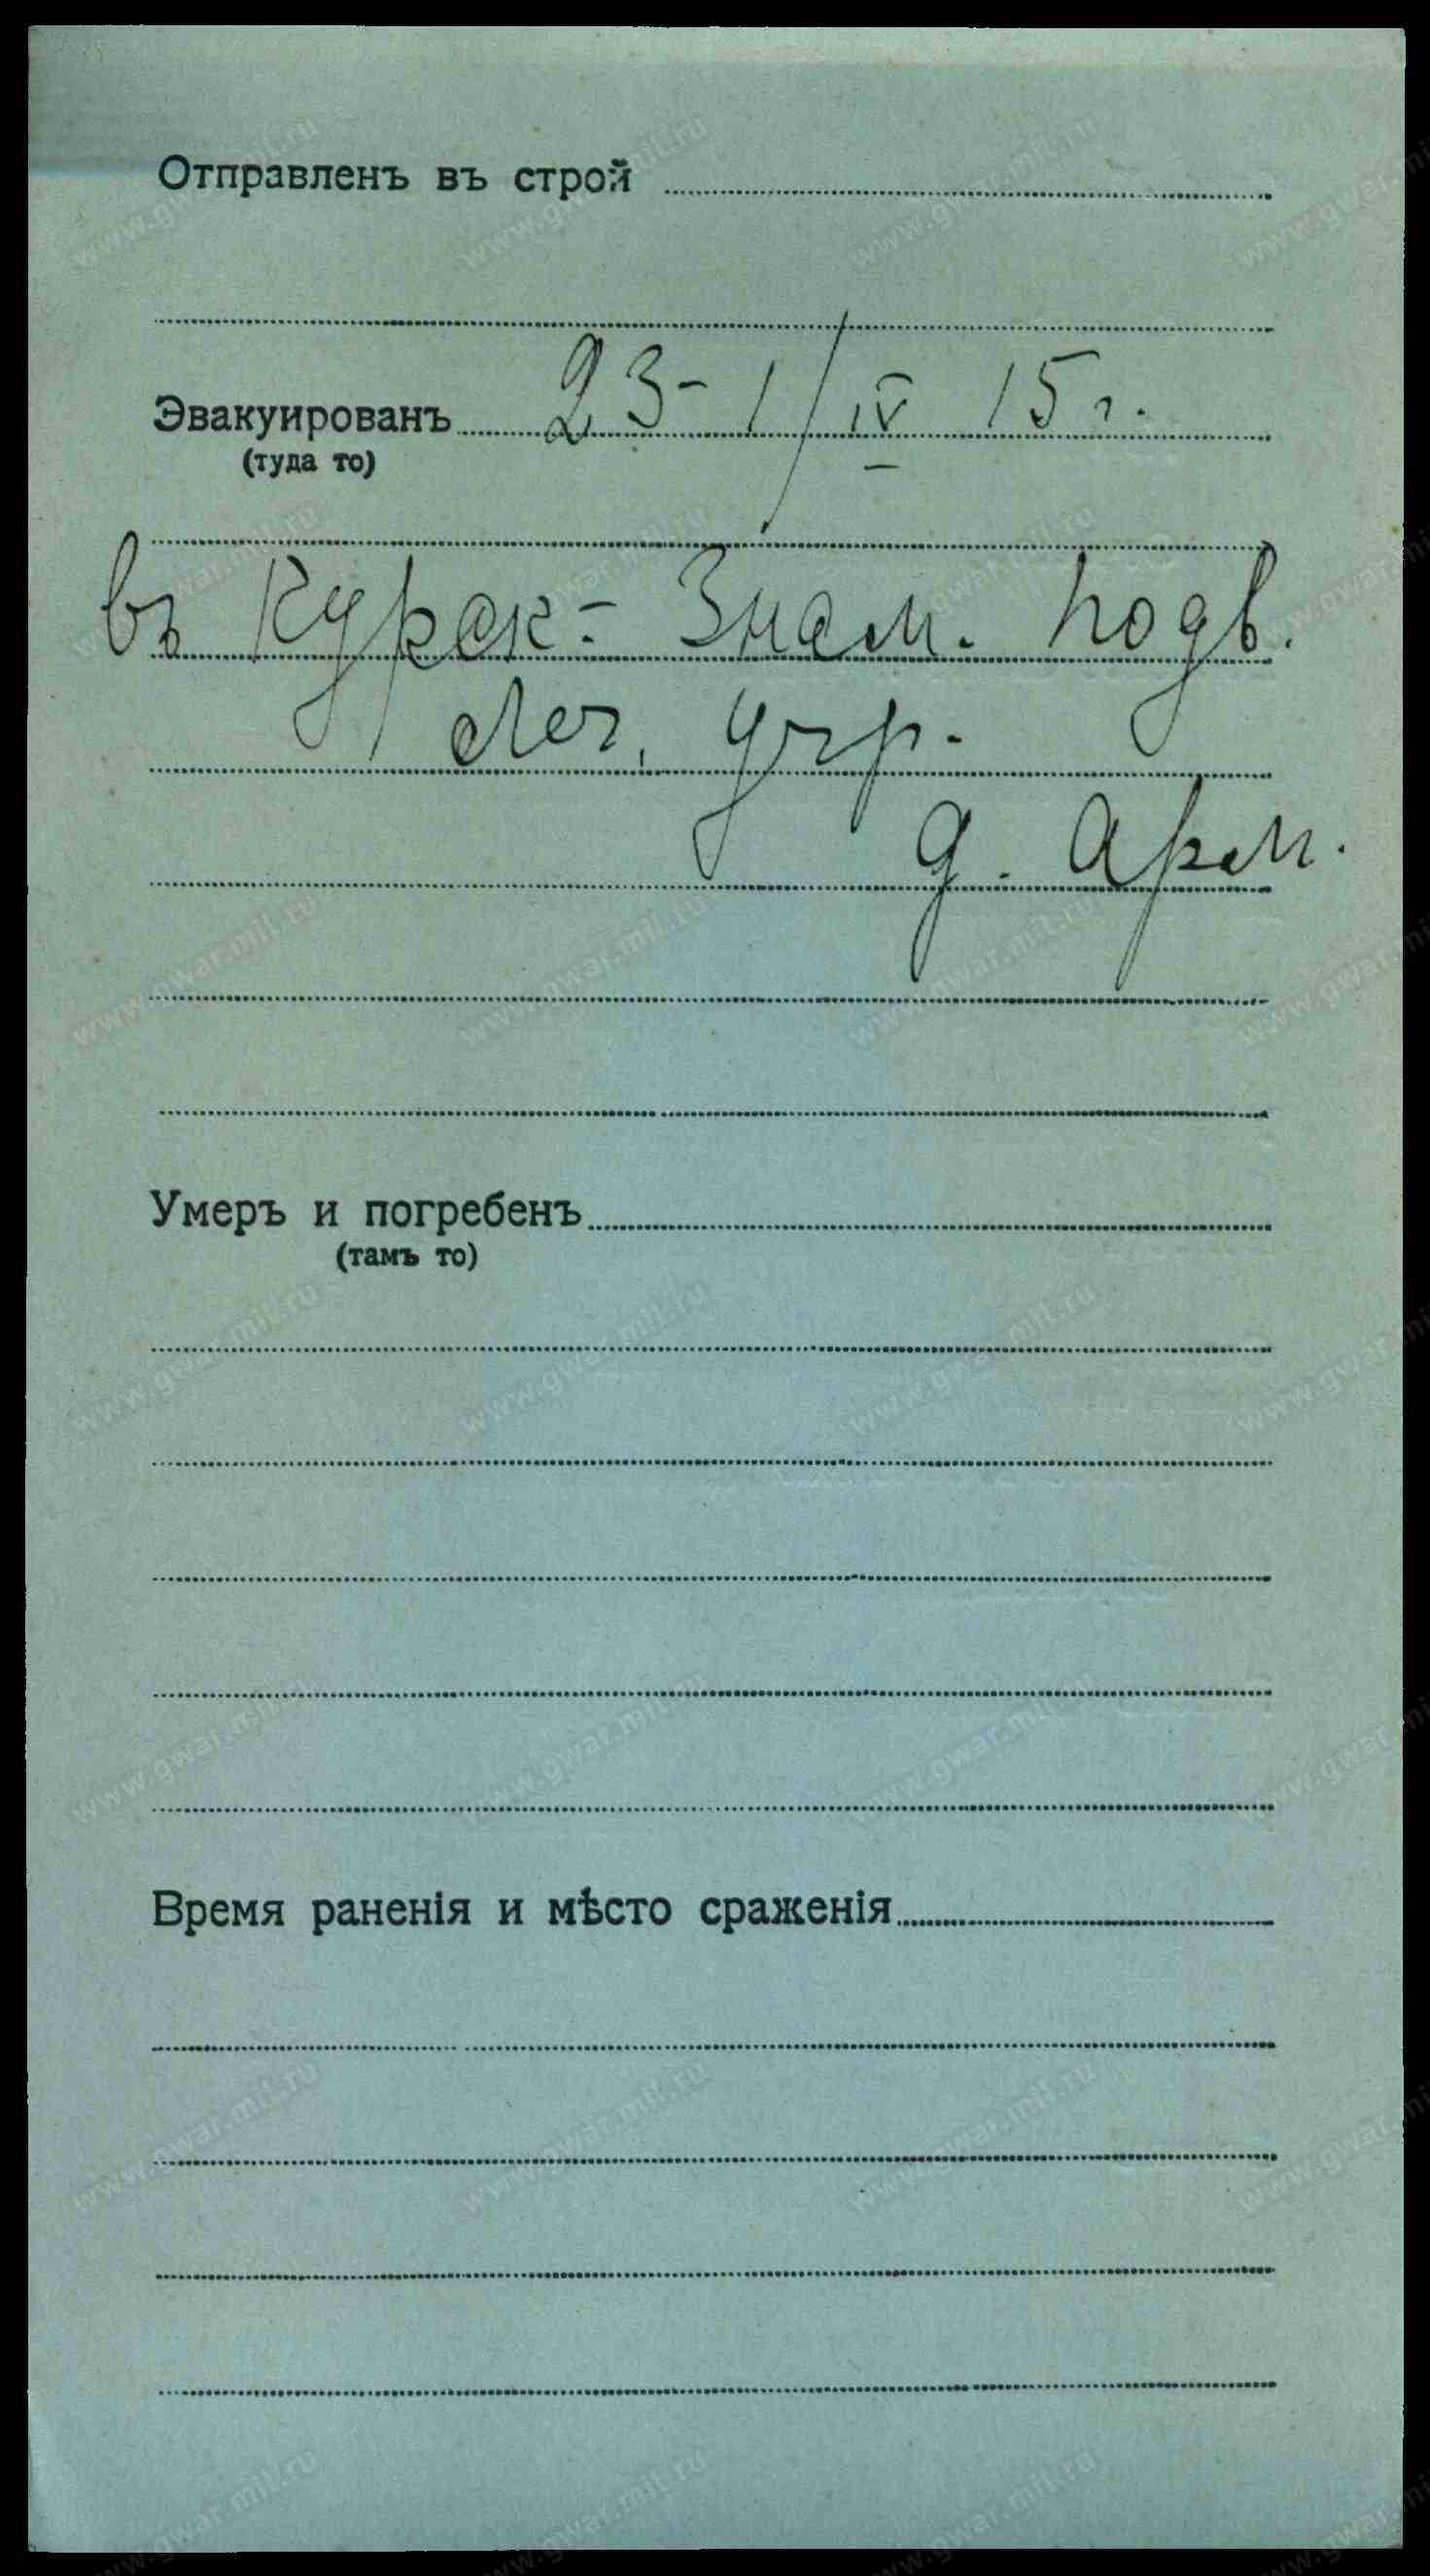 Отправленъ въ строй
Эвакуированъ 23 - 1/IV 15 г.
(туда то)
въ Курск - Знам. подв.
Леч. учр.
д. Арм.
Умеръ и погребенъ
(тамъ то)
Время раненія и мѣсто сраженія